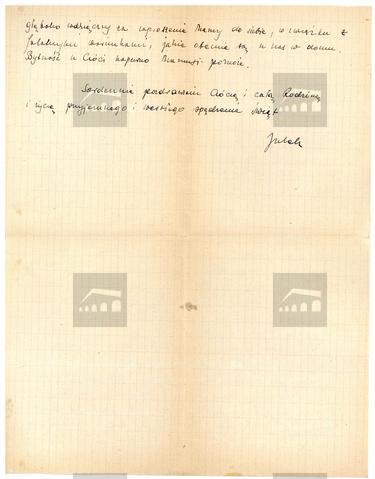 głęboko wdzięczny za zaproszenie Mamy do siebie, w związku z
fatalnymi warunkami, jakie obecnie są u nas w domu.
Bytność u Cioci napewno Mamusi pomoże.
Serdecznie pozdrawiam Ciocię i całą Rodzinę
i życzę przyjemnego i wesołego spędzenia świąt